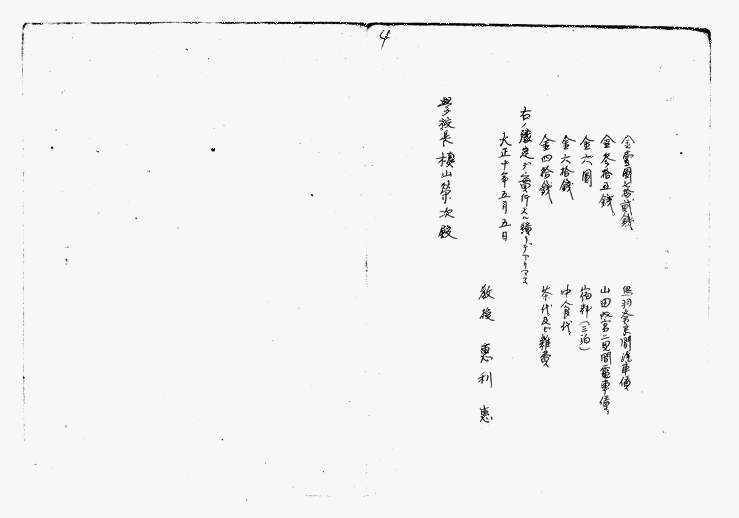 4
金壹圓七拾貳錢 鳥羽奈良間汽車賃
金參拾五錢 山田 二見間電車賃
金六圓 宿料(三泊)
金六拾錢 中食代
金四拾錢 茶代及ビ雜費
右ノ豫定デ實行スル積リデアリマス
大正十年五月五日
敎後 惠利惠
學校長 槇山榮次殿